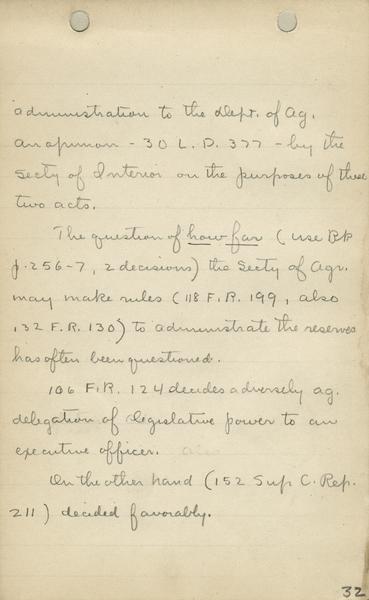 administration to the Dept. of Ag.
an opinion - 30 L. D. 377 - by the
Secty of Interior on the purposes of these
two acts.
The question of how far (use Bk
p. 256-7, 2 decisions) the Secty of Agr.
may make rules (118 F. R. 199, also
132 F. R. 130) to administrate the reserves
has often been questioned.
106 F. R. 124 decides adversely ag.
delegation of legislative power to an
executive officer.
On the other hand (152 Sup C. Rep.
211) decided favorably.
32